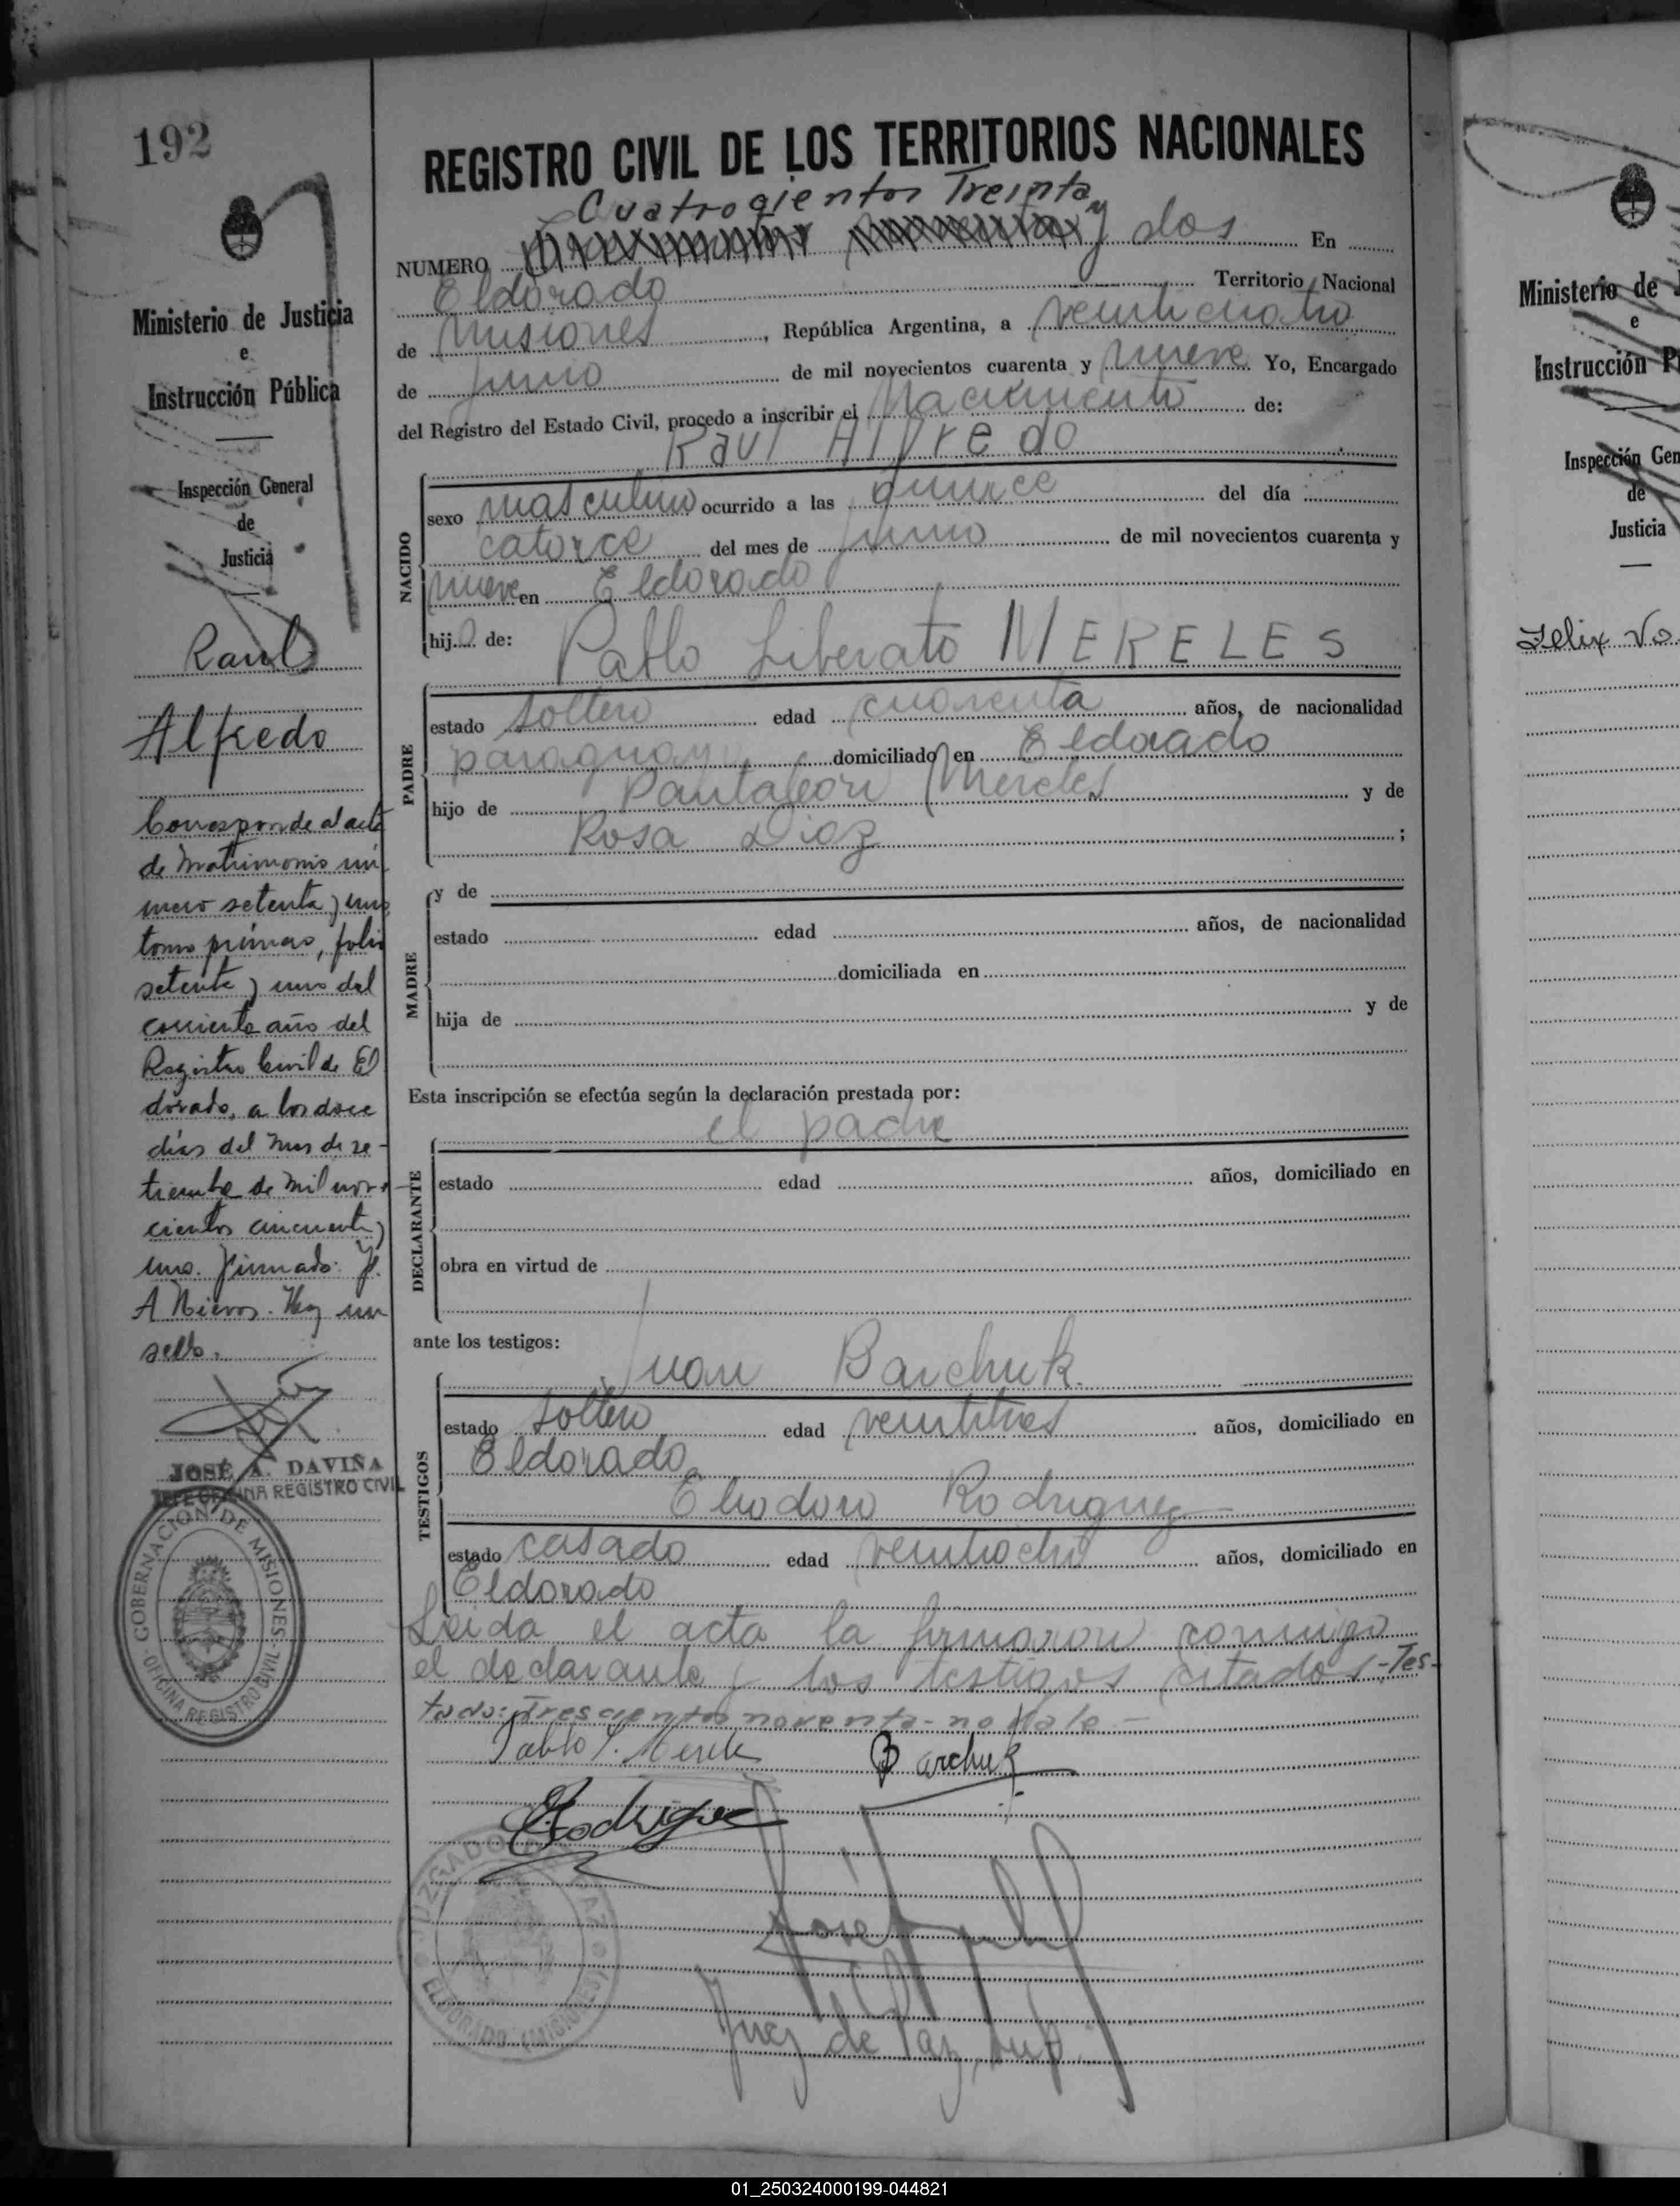 192
REGISTRO CIVIL DE LOS TERRITORIOS NACIONALES
Cuatrocientos Treinta
NUMERO y dos En
Eldorado Territorio Nacional
de Misiones, República Argentina, a veinticuatro
de junio de mil novecientos cuarenta y nueve. Yo, Encargado
del Registro del Estado Civil, procedo a inscribir el Nacimiento de:
Raul Alfredo
NACIDO
sexo masculino ocurrido a las quince del día
catorce del mes de junio de mil novecientos cuarenta y
nueve en Eldorado
hijo de: Pablo Liberato MERELES
PADRE
estado soltero edad cuarenta años, de nacionalidad
paraguay domiciliado en Eldorado
hijo de Pantaleon Mereles y de
Rosa Diaz ;
MADRE
y de
estado edad años, de nacionalidad
domiciliada en
hija de y de
Esta inscripción se efectúa según la declaración prestada por:
el padre
DECLARANTE
estado edad años, domiciliado en
obra en virtud de
ante los testigos:
TESTIGOS
Juan Barchuk
estado soltero edad veintitres años, domiciliado en
Eldorado
Eliodoro Rodriguez
estado casado edad veintiocho años, domiciliado en
Eldorado
Leida el acta la firmaron conmigo
el declarante y los testigos citados.-Tes-
tado: Trescientos noventa- no Vale.-
Pablo L. Merele
Barchuk
Rodrigue
José
Juez de Paz, sup.
JUZGADO DE PAZ
ELDORADO (MISIONES)
Ministerio de Justicia
e
Instrucción Pública
Inspección General
de
Justicia
Raul
Alfredo
Corresponde al acta
de Matrimonio nú
mero setenta y uno
tomo primero, folio
setenta y uno del
corriente año del
Registro Civil de El
dorado, a los doce
días del mes de se-
tiembre de mil nove
cientos cincuenta y
uno. Firmado: J.
A Nieros. Hay un
sello.
JOSÉ A. DAVIÑA
JEFE OFICINA REGISTRO CIVIL
GOBERNACION DE MISIONES
OFICINA REGISTRO CIVIL
Ministerio de
e
Instrucción P
Inspección Gen
de
Justicia
Felix
01_250324000199-044821